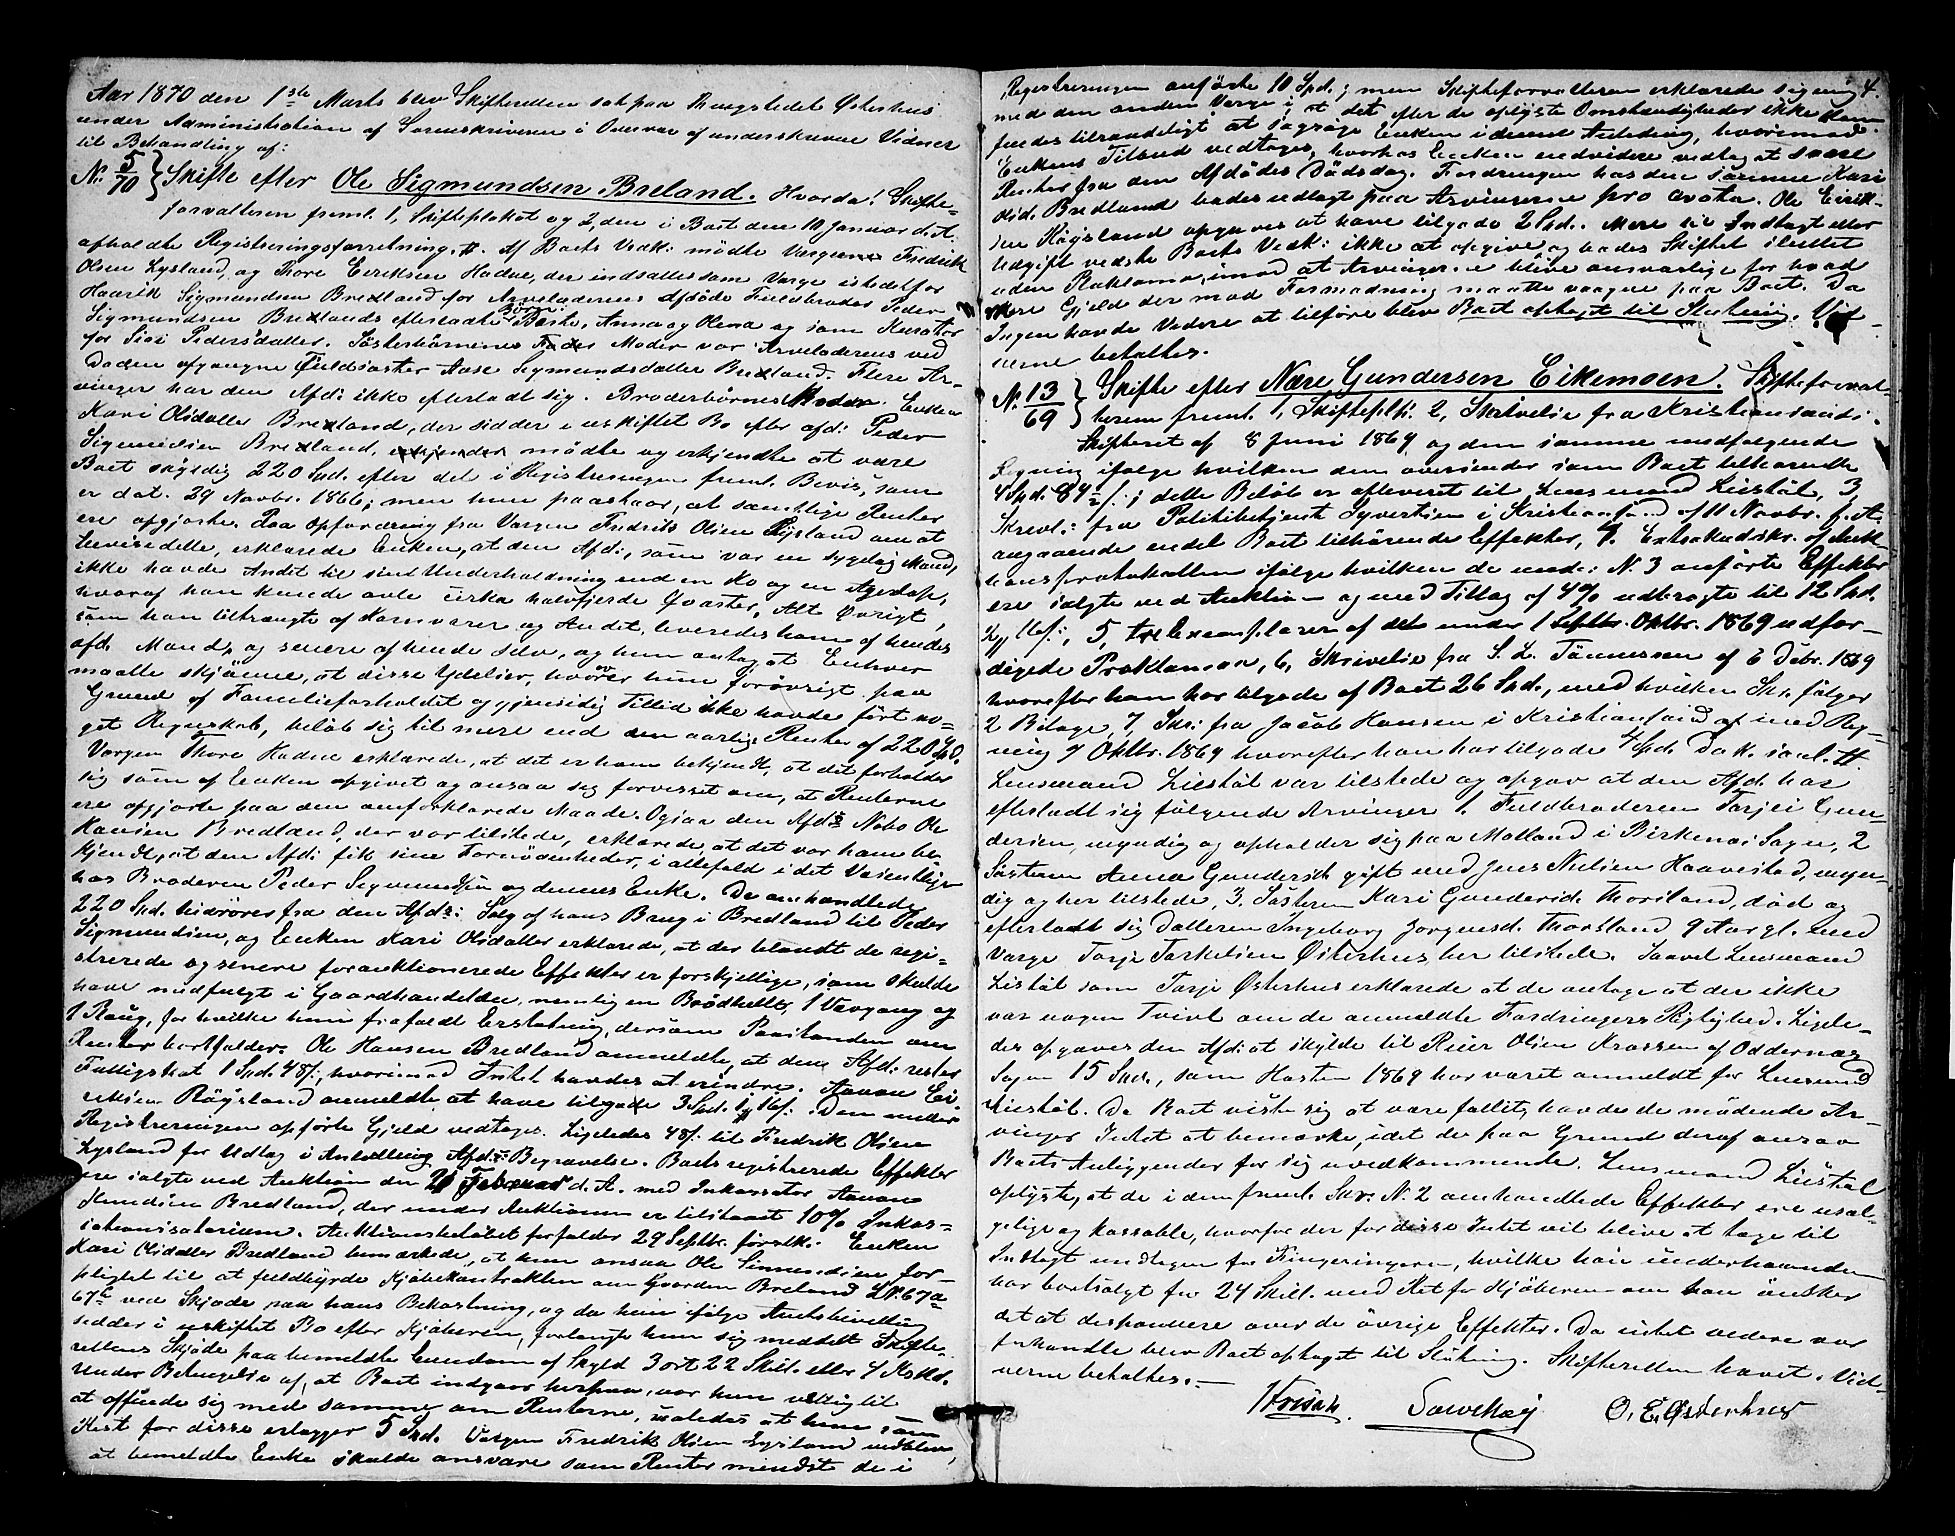 Aar 1870 den 1ste Marts blev Skifteretten sat paa Thingstedet Østerhus
under Administration af Sorenskriveren i Overvær af underskrevne Vidner
til Behandling af:
No. 5/70 } Skifte efter Ole Sigmundsen Breland. Hvorda! Skifte-
forvalteren freml. 1, Skifteplakat og 2, den i Boet den 10 Januar d. A.
afholdte Registreringsforretning. Af Boets Vedk: mødte Vargerne Fredrik
Olsen Lysland, og Thore Eeriksen Hadne, der indsattes som Varge istedetfor
Haarik Sigmundsen Bredland for Arveladerens Afdøde Fuldbroder Peder
Sigmundsen Bredlands efterladte Børn: Berte, Anna og Olena og som Kurator
for Siri Pedersdatter. Søsterbørnenes Moder var Arveladerens ved
Døden afgangne Fuldsøster Aase Sigmundsdatter Bredland. Flere Ar-
vinger har den Afd: ikke efterladt sig. Broderbørnenes Moder Enken
Kari Olsdatter Bredland, der sidder i uskiftet Bo efter afd: Peder
Sigmundsen Bredland, mødte og erkjendte at være
Boet skyldig 220 Spd. efter det i Registreringen freml. Bevis, som
er dat. 29 Novbr. 1866; men hun paastaar, at samtlige Renter
ere afgjorte. Paa Opfordring fra Vargen Fredrik Olsen Lysland om at
bevise dette, erklærede Enken, at den Afd:, som var en sygelig Mand,
ikke havde Andet til sin Underholdning end en Ko og en Agerlap,
hvoraf han kunde avle cirka halvfjerde Qvarter, Alt Øvrigt,
som han tiltrængte af Kornvarer og Andet, leveredes ham af hendes
afd. Mand, og senere af hende selv, og hun antog at Enhver
maatte skjønne, at disse Ydelser, hvorover hun forøvrigt paa
Grund af Familieforholdet og gjensidig Tillid ikke havde ført no-
get Regnskab, beløb sig til mere end den aarlige Renter af 220 Spd.
Vargen Thore Hadne erklærede, at det er ham bekjendt, at det forholder
sig som af Enken opgivet og ansaa sig forvisset om, at Renterne
ere afgjorte paa den omforklarede Maade. Ogsaa den Afd:s Nabo Ole
Hansen Bredland, der var tilstede, erklærede, at det var ham be-
kjendt, at den Afd: fik sine Fornødenheder, i allefald i det Væsentlige
hos Broderen Peder Sigmundsen og dennes Enke. De omhandlede
220 Spd. hidrører fra den Afd:s Salg af hans Brug i Bredland til Peder
Sigmundsen, og Enken Kari Olsdatter erklærede, at der blandt de regi-
strerede og senere forauktionerede Effekter er forskjellige, som skulde
have medfulgt i Gaardhandelen, nemlig en Brødhelle, 1 Vævgang og
1 Raug, for hvilke hun frafaldt Erstatning, dersom Paastanden om
Renter bortfalder. Ole Hansen Bredland anmeldte, at den Afd. rester
Fattigskat 1 Spd. 48 s:, hvorimod Intet havdes at erindre. Aavan Ei-
riksen Røgsland anmeldte at have tilgode 3 Spd. 1 ₰ 16 s: Den under
Registreringen opførte Gjeld vedtages. Ligeledes 48 s: til Fredrik Olsen
Lysland for Udlæg i Anledning Afd:s Begravelse. Boets registrerede Effekter
ere solgte ved Auktion den 21 Februar d. A. med Inkassator Aavan
Knudsen Bredland, der under Auktionen er tilstaaet 10% Inkas-
sationssalarium. Auktionsbeløbet forfalder 29 Septbr. førstk: Enken
Kari Olsdatter Bredland bemærkede, at hun ansaa Ole Simundsen for-
pligtet til at fuldbyrde Kjøbekontrakten om Gaarden Breland L.No. 67a
67b ved Skjøde paa hans Bekostning, og da hun ifølge Amtsbevilling
sidder i uskiftet Bo efter Kjøberen, forlangte hun sig meddelt Skifte-
rettens Skjøde paa bemeldte Eiendom af Skyld 3 ort 22 Skil. eller 4
Under Betingelse af, at Boet indgaar herpaa, var hun villig til
at affinde sig med samme om Renterne, saaledes at hun som
Rest for disse erlægger 5 Spd. Vargen Fredrik Olsen Lysland vedblev,
at bemeldte Enke skulde ansvare som Renter mindst de i
4.
Registreringen anførte 10 Spd.; men Skifteforvalteren erklærede sig enig
med den anden Varge i, at det efter de oplyste Omstændigheder ikke kan
findes tilraadeligt at sagsøge Enken i denne Anledning, hvorimod
Enkens Tilbud vedtages, hvorhos Enken endvidere vedtog at svare
Renter fra den Afdødes Dødsdag. Fordringen hos den samme Kari
Olsd. Bredland bedes udlagt paa Arvingerne pro qvota. Ole Eirik-
sen Høgsland opgaves at have tilgode 2 Spd. Mere til Indtægt eller
Udgift vedste Boets Vedk: ikke at opgive og bades Skiftet sluttet
uden Proklama, imod at Arvingerne blive ansvarlige for hvad
mere Gjeld der mod Formodning maatte vaagne paa Boet. Da
Ingen havde Videre at tilføre blev Boet optaget til Slutning. Vid-
nerne behøltes.
No. 13/69 } Skifte efter Nære Gundersen Eikemoen. Skifteforval-
teren freml. 1, Skiftepl: 2, Skrivelse fra Kristiansands
Skifteret af 8 Juni 1869 og den samme medfølgende
Ligning ifølge hvilken den oversender som Boet tilhørende
4 Spd. 84½ s:; dette Beløb er afleveret til Lensmand Liestøl, 3,
Skrivl: fra Politibetjent Syvertsen i Kristiansand af 11 Novbr. f. A.
angaaende endel Boet tilhørende Effekter, 4. Extraktudskr. af Auk-
tionsprotokollen ifølge hvilken de und: N. 3 anførte Effekter
ere solgte ved Auktion og med Tillæg af 4% udbragte til 12 Spd.
16 s:, 5, tre Exemplarer af det under 1 Oktbr. 1869 udfær-
digede Proklamaer, 6, Skrivelse fra S. L. Tønnessen af 6 Debr. 1869
hvorefter han har tilgode af Boet 26 Spd., med hvilken Skr. følger
2 Bilage, 7, Skr: fra Jacob Hansen i Kristiansand med Reg-
ning 9 Oktbr. 1869 hvorefter han har tilgode 4 Spd.
Lensmand Liestøl var tilstede og opgav at den Afd. har
efterladt sig følgende Arvinger 1. Fuldbroderen Tarjei Gun-
dersen, myndig og opholder sig paa Molland i Birkenæs Sogn, 2
Søsteren Anna Gundersd. gift med Jens Nielsen Haavestad, myn-
dig og her tilstede, 3. Søsteren Kari Gundersd. Thorsland, død og
efterladt sig Datteren Ingeborg Jørgensd. Thorsland 9 Aar gl. med
Varge Tarje Tarkelsen Østerhus her tilstede. Saavel Lensmand
Liestøl som Tarje Østerhus erklærede at de antage at der ikke
var nogen Tvivl om de anmeldte Fordringers Rigtighed. Ligele-
des opgaves den Afd: at skylde til Reier Olsen Krossen af Oddernæs
Sogn 15 Spd., som Høsten 1869 har været anmeldt for Lensmand
Liestøl. Da Boet viste sig at være fallit, havde de mødende Ar-
vinger Intet at bemærke, idet de paa Grund deraf ansaa
Boets Anliggender for sig uvedkommende. Lensmand Liestøl
oplyste, at de i den freml. Skr. N. 2 omhandlede Effekter ere usæl-
gelige og kassable, hvorfor der for disse Intet vil blive at tage til
Indtægt undtagen for Fingerringen, hvilke han underhaanden
har bortsolgt for 24 Skill. med Ret for Kjøberen om han ønsker
det at disponere over de øvrige Effekter. Da intet videre var
forhandle blev Boet optaget til Slutning. Skifteretten hævet. Vid-
nerne behøltes.—
O. E. Østerhus